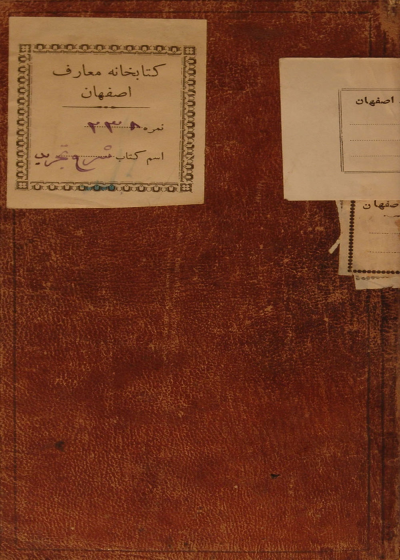 کتابخانه معارف
اصفهان
نمره ۲۳۸
اسم کتاب شرح تجرید
اصفهان
صفهان